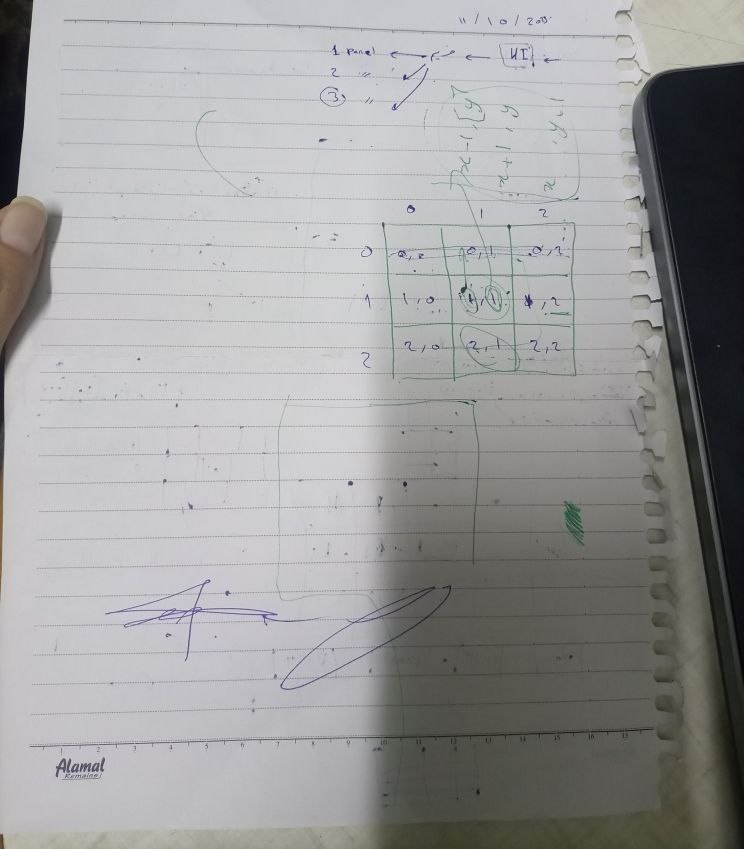 11/10/200
1 Panel ← ← UI ←
2 "
3 "
x-1, y
x+1, y
x, y,1
0 1 2
0 0,1 0,2
1 1,0 1,1 1,2
2 2,0 2,1 2,2
1 2 3 4 5 6 7 8 9 10 11 12 13 14 15 16 17 18
Alamal
Romaine